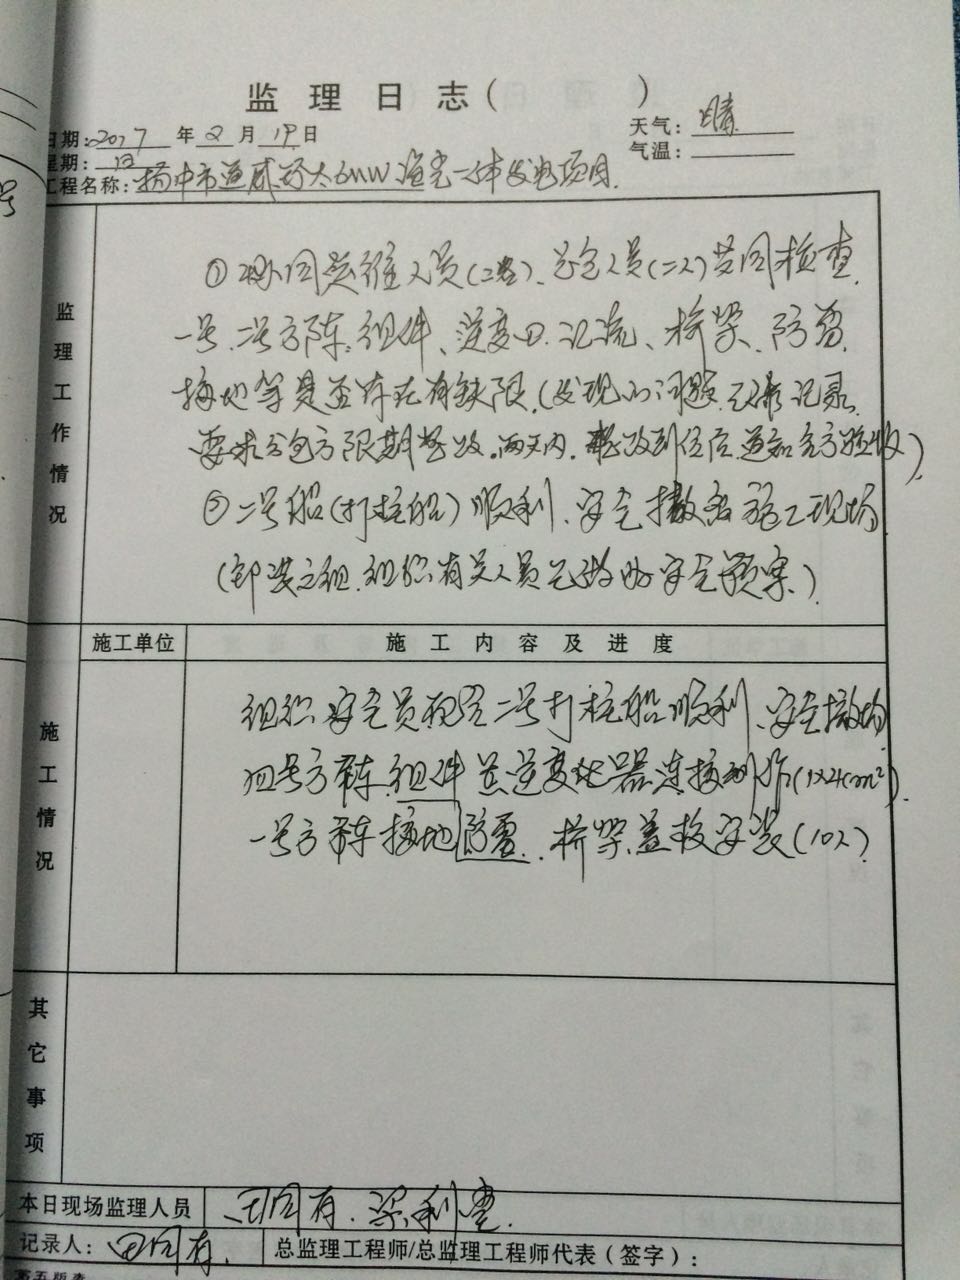 监理日志（ ）
日期：2017 年 2 月 19 日 天气：晴
星期：日 气温：
工程名称：扬中市通威 太 6MW 渔光一体发电项目.
监理工作情况
①协同运维人员(二名)、总包人员(二人)共同检查
一号、二号方阵、组件、逆变 、汇流、桥架、防雷、
接地等是否存在有缺限.(发现的问题.已 记录
要求分包方限期整改.两天内.整改到位后.通知各方验收)
②二号船(打桩船)顺利、安全撤离施工现场
(卸装 组.组织有关人员已做好安全预案.)
施工单位 施工内容及进度
施工情况
组织安全员配合二号打桩船顺利、安全撤场
四号方阵.组件 逆变 器连接 作(1×4cm²).
一号方阵接地 防雷. 桥架盖板安装(10人)
其它事项
本日现场监理人员 田同有.梁利
记录人：田同有. 总监理工程师/总监理工程师代表（签字）：